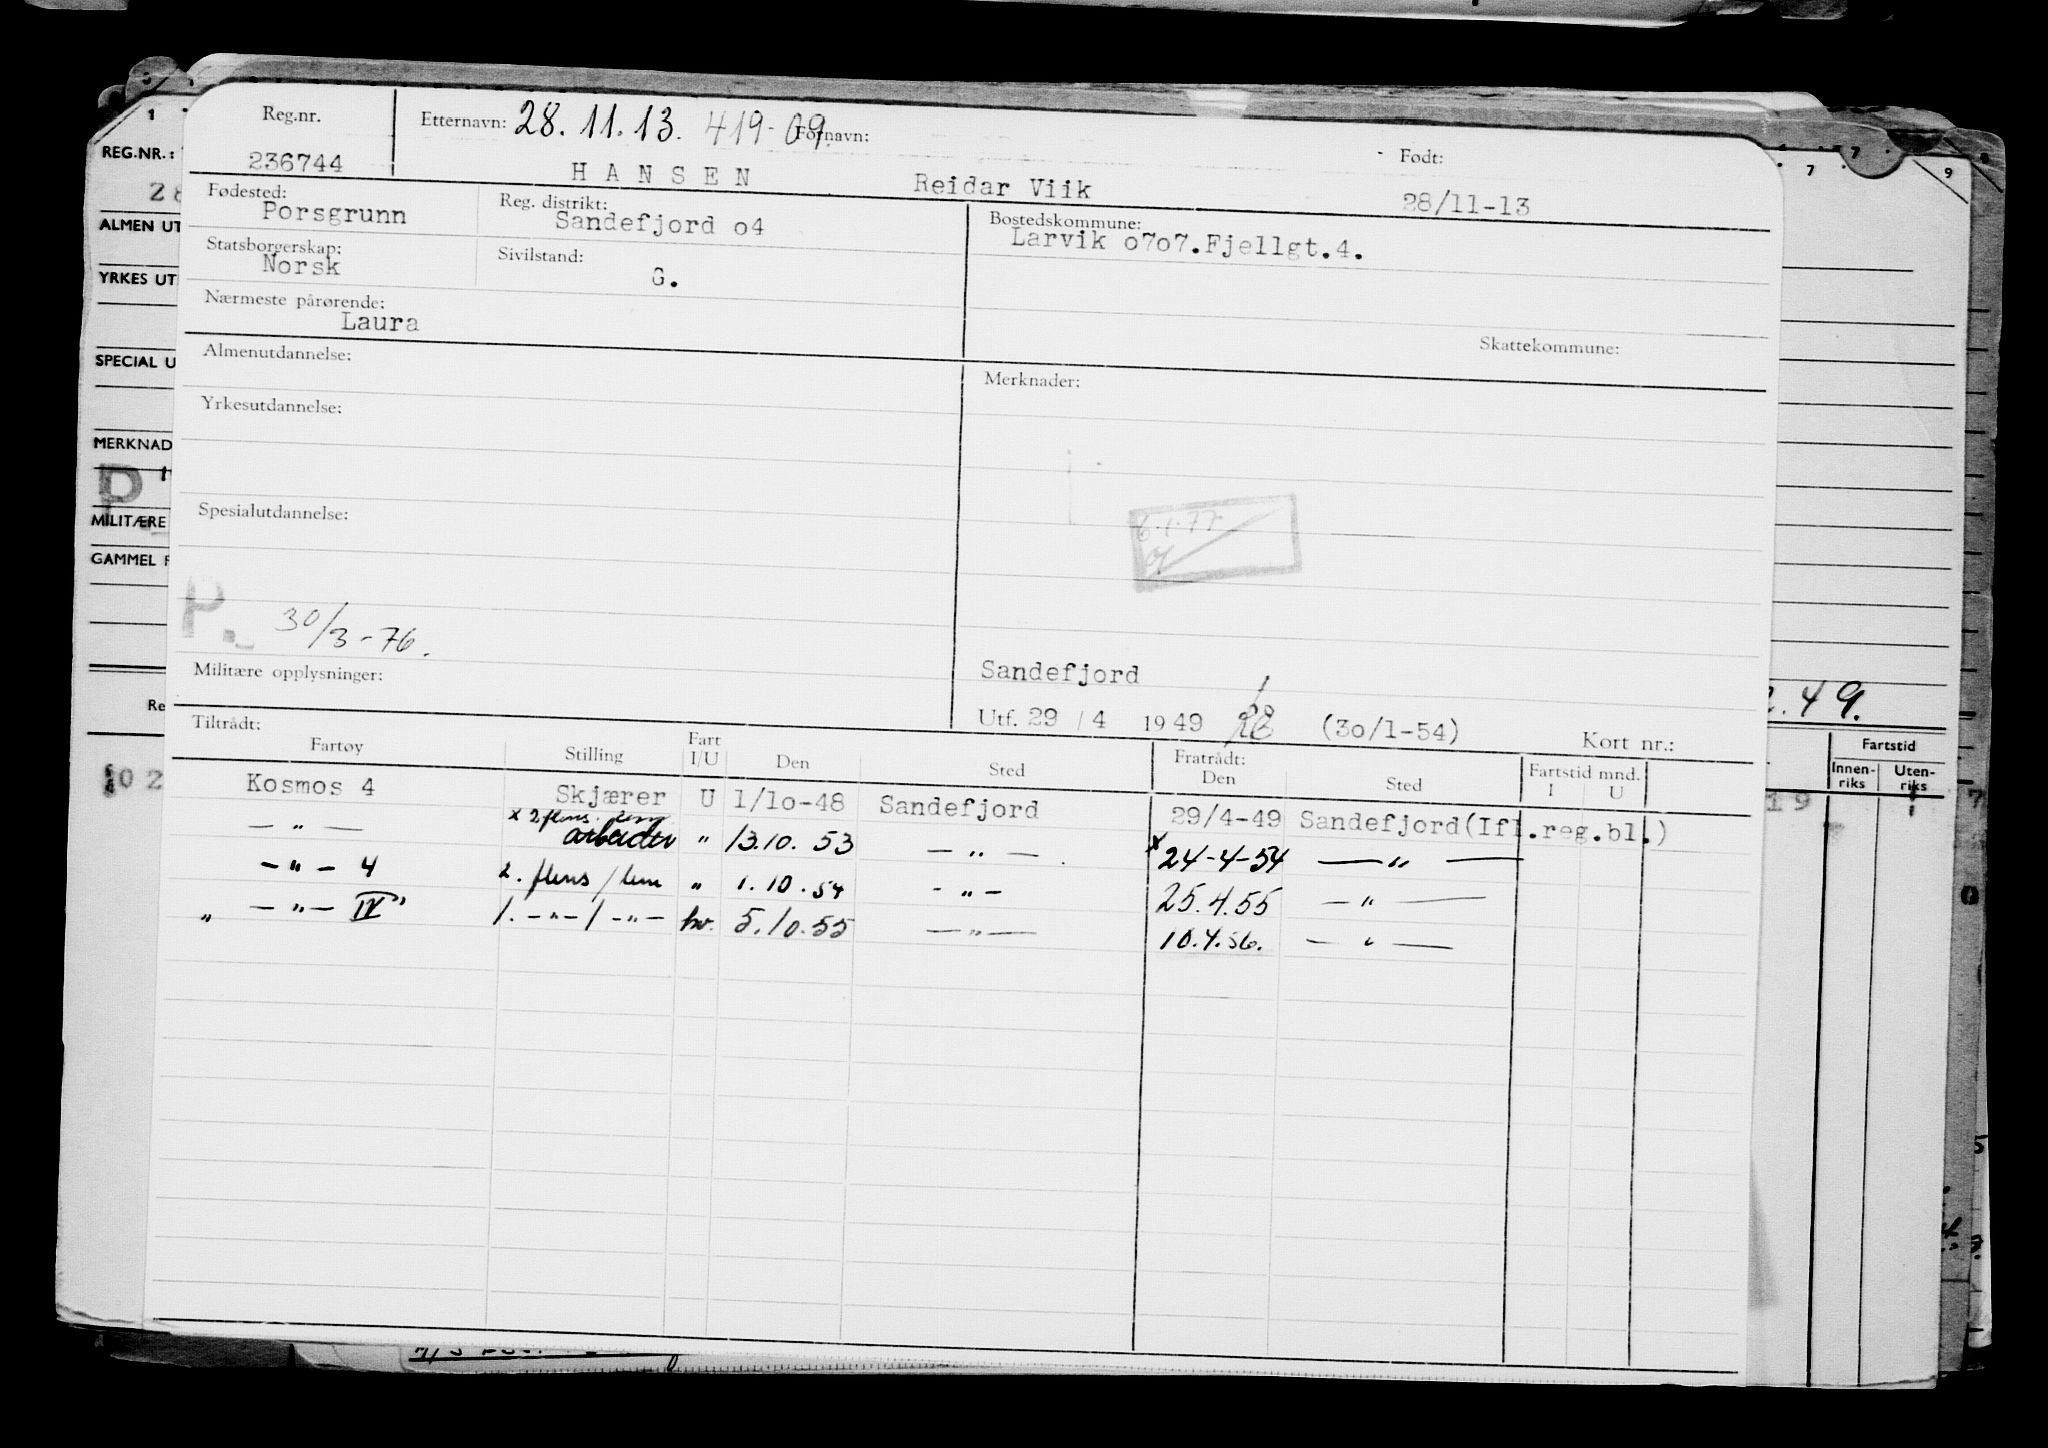 Reg.nr. Etternavn: 28.11.13. 419-09 Fornavn: Født:
236744 HANSEN Reidar Viik 28/11-13
Fødested: Reg. distrikt: Bostedskommune:
Porsgrunn Sandefjord o4 Larvik o7o7.Fjellgt.4.
Statsborgerskap: Sivilstand:
Norsk G.
Nærmeste pårørende:
Laura
Skattekommune:
Almenutdannelse: Merknader:
Yrkesutdannelse:
Spesialutdannelse:
6.1.77
P. 30/3-76.
Militære opplysninger: Sandefjord
Utf. 29 / 4 1949 (3o/1-54) Kort nr.:
Tiltrådt: Fratrådt:
Fartøy Stilling Fart I/U Den Sted Den Sted Fartstid mnd. I U
Kosmos 4 Skjærer U 1/1o-48 Sandefjord 29/4-49 Sandefjord(Ifl.reg.bl.)
x 2.flens. lem
— " — arbeider " 13.10.53 — " — x 24-4-54 — " —
— " — 4 2. flens / lem " 1.10.54 - " - 25.4.55 — " —
" — " — IV" 1. — " — / — " — hv. 5.10.55 — " — 10.4.56. — " —
REG.NR.:
28
ALMEN UT
YRKES UT
SPECIAL U
MERKNAD
P
MILITÆRE
GAMMEL F
Re
02
1
7
9
.49.
Fartstid
Innen-riks Uten-riks
19